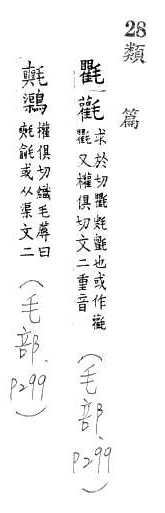 28
類篇
氍
求於切氍毹氈也或作
氍又權俱切文二重音
(毛部、P299)
權俱切織毛蓐曰
毹或从渠文二
(毛部、P299)